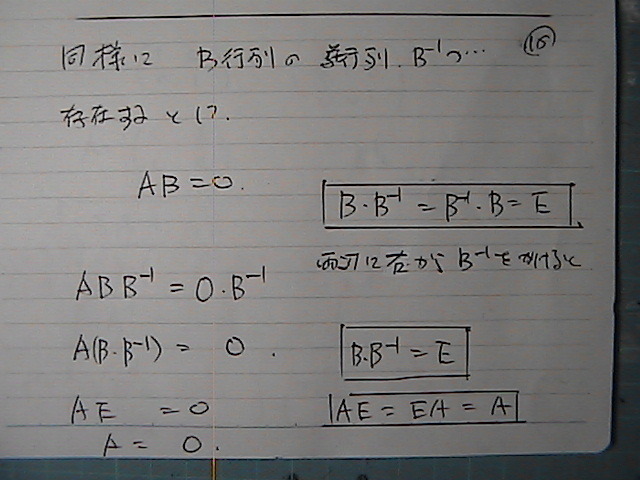 同様に B行列の 逆行列 B⁻¹が…
⑯
存在すると仮定
AB = 0.
B・B⁻¹ = B⁻¹・B = E
両辺に右から B⁻¹をかけると
ABB⁻¹ = 0・B⁻¹
A(B・B⁻¹) = 0.
B・B⁻¹ = E
AE = 0
AE = EA = A
A = 0.